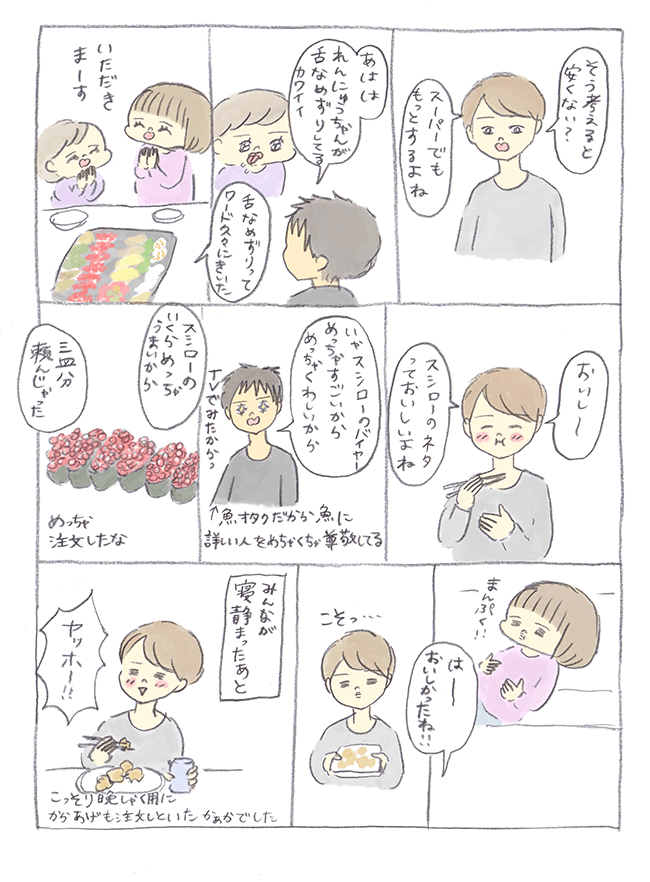 そう考えると
安くない？
スーパーでも
もっとするよね
あはは
れんにゅうちゃんが
舌なめずりしてる
カワイイ
舌なめずりって
ワード久々にきいた
いただき
まーす
おいし〜
スシローのネタ
っておいしいよね
いやスシローのバイヤー
めっちゃすごいから
めっちゃくわしいから
TVでみたからっ
↑魚オタクだから魚に
詳しい人をめちゃくちゃ尊敬してる
スシローの
いくらめっちゃ
うまいから
三皿分
頼んじゃった
めっちゃ
注文したな
まんぷく!!
は〜〜
おいしかったね!!
こそっ・・・
みんなが
寝静まったあと
ヤッホー!!
こっそり晩しゃく用に
からあげも注文しといた かぁかでした